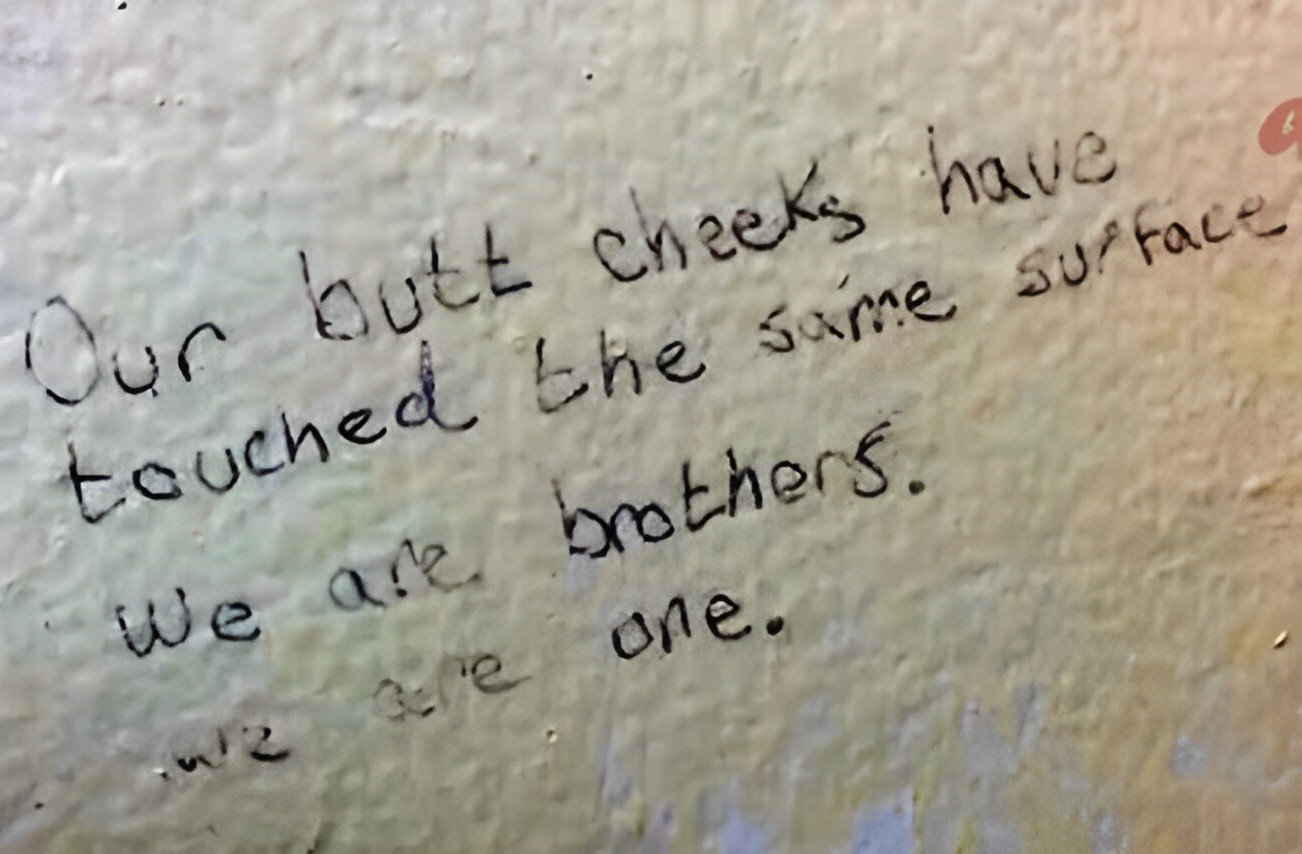 Our butt cheeks have
touched the same surface
We are brothers.
we are one.